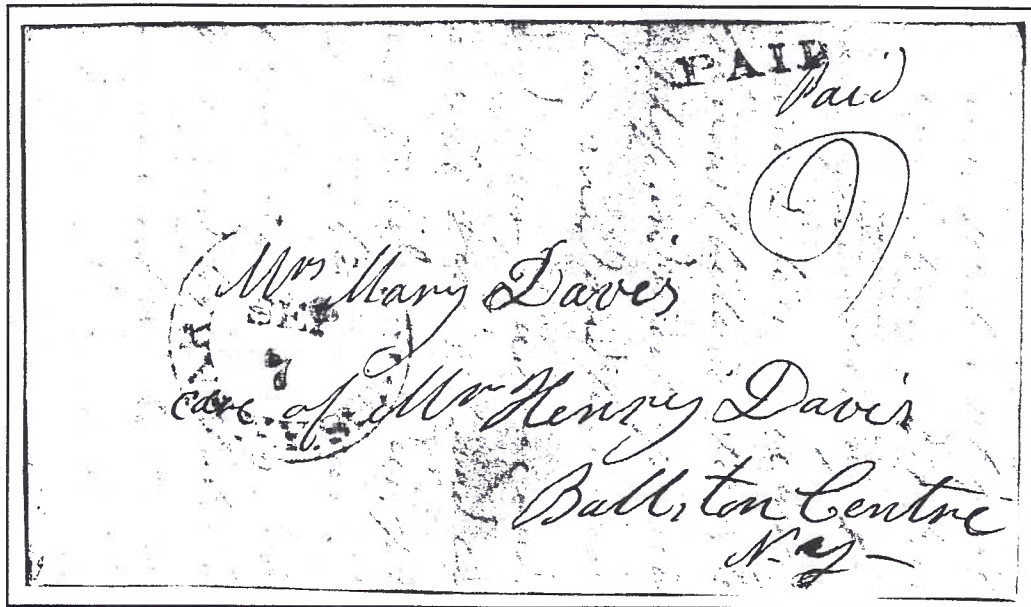 PAID
Paid
Mrs Mary Davis
SEP
care of Mr Henry Davis
Ballston Centre
N. Y